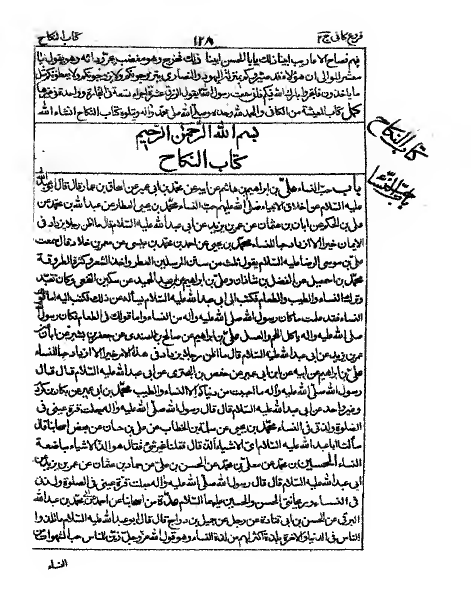 فروع كافي ج ٢
١٢٨
كتاب النكاح
ابينا ذلك يابا الحسن ابينا ذلك فخرج وهو مغضب يجر ردائه وهو يقول يا
معشر الموالي ان هؤلاء قد صيروكم بمنزلة اليهود والنصارى يتزوجون اليكم ولا يزوجونكم ولا يعطونكم مثل
ما ياخذون فاتجروا بارك الله لكم فاني سمعت رسول الله يقول الرزق عشرة اجزاء تسعة في التجارة وواحد في غيرها
كمل كتاب المعيشة من الكافي والحمد لله وحده وصلى الله على محمد وآله ويتلوه كتاب النكاح انشاء الله
بسم الله الرحمن الرحيم
كتاب النكاح
باب حب النساء علي بن ابراهيم بن هاشم عن ابيه عن محمد بن ابي عمير عن اسحاق بن عمار قال قال ابو عبد الله
عليه السلام من اخلاق الانبياء صلى الله عليهم حب النساء محمد بن يحيى العطار عن عبد الله بن محمد عن
علي بن الحكم عن ابان بن عثمان عن عمر بن يزيد عن ابي عبد الله عليه السلام قال ما اظن رجلا يزداد في
الايمان خيرا الا ازداد حبا للنساء محمد بن يحيى عن احمد بن محمد بن عيسى عن معمر بن خلاد قال سمعت
علي بن موسى الرضا عليه السلام يقول ثلث من سنن المرسلين العطر واخذ الشعر وكثرة الطروقة
محمد بن اسمعيل عن الفضل بن شاذان وعلي بن ابراهيم عن ابيه عن سكين النخعي وكان تعبد
وترك النساء والطيب والطعام فكتب الى ابي عبد الله عليه السلام يسأله عن ذلك فكتب اليه اما قولك في
النساء فقد علمت ما كان رسول الله صلى الله عليه وآله من النساء واما قولك في الطعام فكان رسول الله
صلى الله عليه وآله ياكل اللحم والعسل علي بن ابراهيم عن صالح بن السندي عن جعفر بن بشير عن ابان عن
عمر بن يزيد عن ابي عبد الله عليه السلام قال ما اظن رجلا يزداد في هذا الامر خيرا الا ازداد حبا للنساء
علي بن ابراهيم عن ابيه عن ابن ابي عمير عن حفص بن البختري عن ابي عبد الله عليه السلام قال قال
رسول الله صلى الله عليه وآله ما احببت من دنياكم الا النساء والطيب محمد بن ابي عمير عن بكار بن كردم
وغير واحد عن ابي عبد الله عليه السلام قال قال رسول الله صلى الله عليه وآله جعلت قرة عيني في
الصلوة ولذتي في النساء محمد بن يحيى عن سلمة بن الخطاب عن علي بن حسان عن بعض اصحابنا قال
سألنا ابا عبد الله عليه السلام اي الاشياء الذ قال فقلنا غير شيء فقال هو الذ الاشياء مباضعة
النساء الحسين بن محمد عن معلى بن محمد عن الحسن بن علي عن حماد بن عثمان عن عمر بن يزيد عن
ابي عبد الله عليه السلام قال قال رسول الله صلى الله عليه وآله جعلت قرة عيني في الصلوة ولذتي
في النساء وريحانتي الحسن والحسين عليهما السلام عدة من اصحابنا عن احمد بن ابي عبد الله
البرقي عن الحسن بن ابي قتادة عن رجل عن جميل بن دراج قال قال ابو عبد الله عليه السلام ما تلذذ
الناس في الدنيا والاخرة بلذة اكثر لهم من لذة النساء وهو قول الله عز وجل زين للناس حب الشهوات من
النساء
كتاب النكاح
باب حب النساء